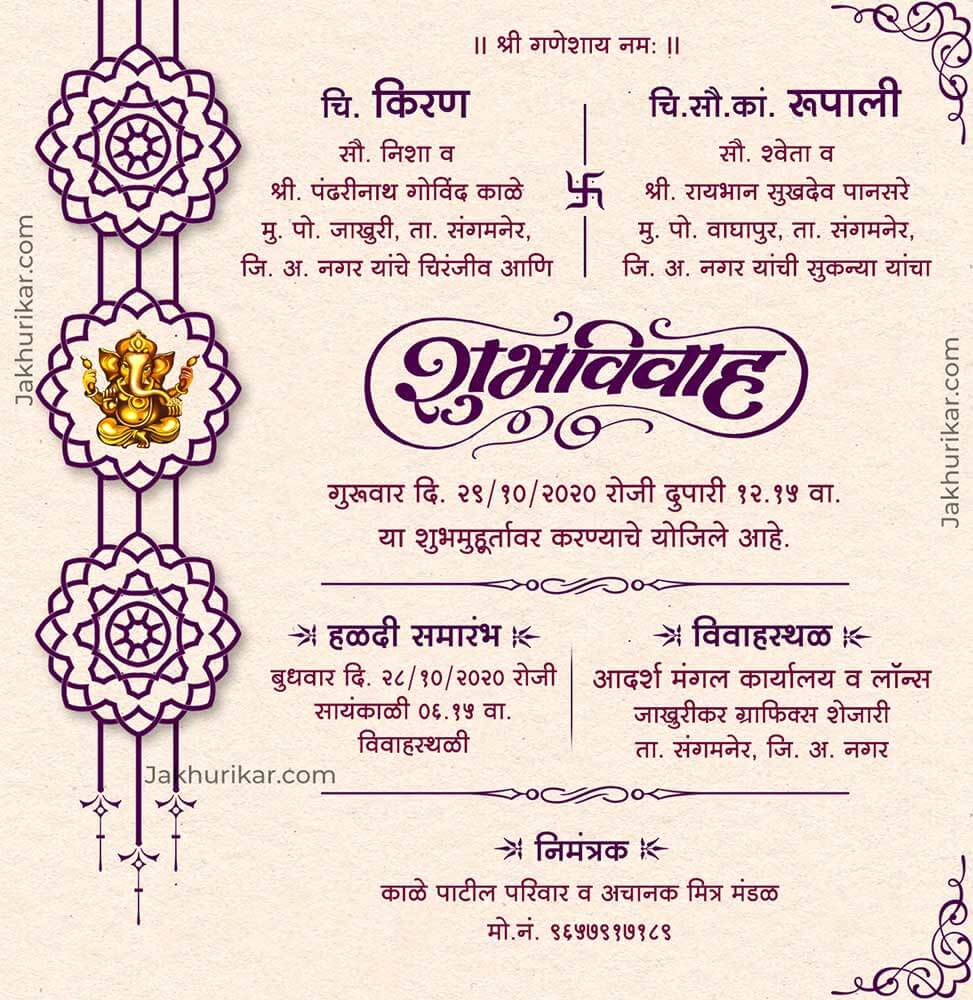 ॥ श्री गणेशाय नमः ॥
चि. किरण
सौ. निशा व
श्री. पंढरीनाथ गोविंद काळे
मु. पो. जाखुरी, ता. संगमनेर,
जि. अ. नगर यांचे चिरंजीव आणि
चि.सौ.कां. रूपाली
सौ. श्वेता व
श्री. रायभान सुखदेव पानसरे
मु. पो. वाघापुर, ता. संगमनेर,
जि. अ. नगर यांची सुकन्या यांचा
शुभविवाह
गुरूवार दि. २९/१०/२०२० रोजी दुपारी १२.१५ वा.
या शुभमुहूर्तावर करण्याचे योजिले आहे.
हळदी समारंभ
बुधवार दि. २८/१०/२०२० रोजी
सायंकाळी ०६.१५ वा.
विवाहस्थळी
विवाहस्थळ
आदर्श मंगल कार्यालय व लॉन्स
जाखुरीकर ग्राफिक्स शेजारी
ता. संगमनेर, जि. अ. नगर
निमंत्रक
काळे पाटील परिवार व अचानक मित्र मंडळ
मो.नं. ९६५७९१७१८९
Jakhurikar.com
Jakhurikar.com
Jakhurikar.com